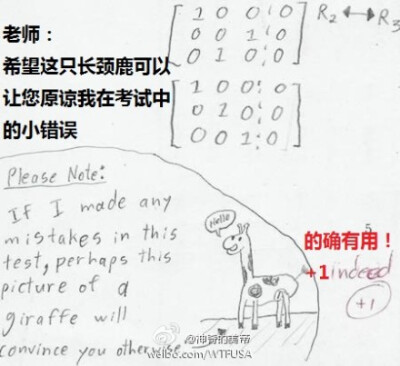 老师：
希望这只长颈鹿可以
让您原谅我在考试中
的小错误
1 0 0 0
0 0 1 0
0 1 0 0
R2 ↔ R3
1 0 0 0
0 1 0 0
0 0 1 0
Please Note:
If I made any
mistakes in this
test, perhaps this
picture of a
giraffe will
convince you otherwise
Hello
的确有用！
+1 indeed
+1
weibo.com/WTFUSA